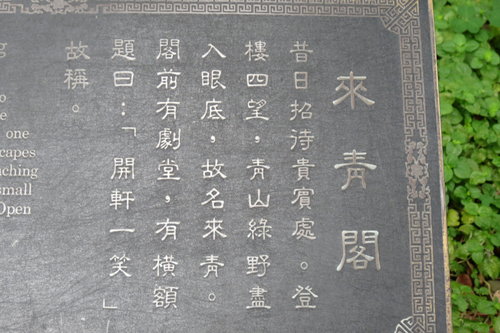 來青閣
昔日招待貴賓處。登
樓四望,青山綠野盡
入眼底,故名來青。
閣前有劇堂,有橫額
題曰:「開軒一笑」
故稱。
one
capes
ching
small
Open